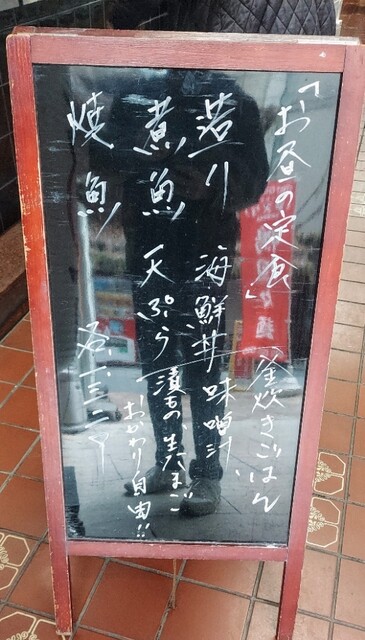 「お昼の定食」
造り 海鮮丼
煮魚 天ぷら
焼魚
釜炊きごはん
味噌汁、
漬もの、生たまご
おかわり自由!!